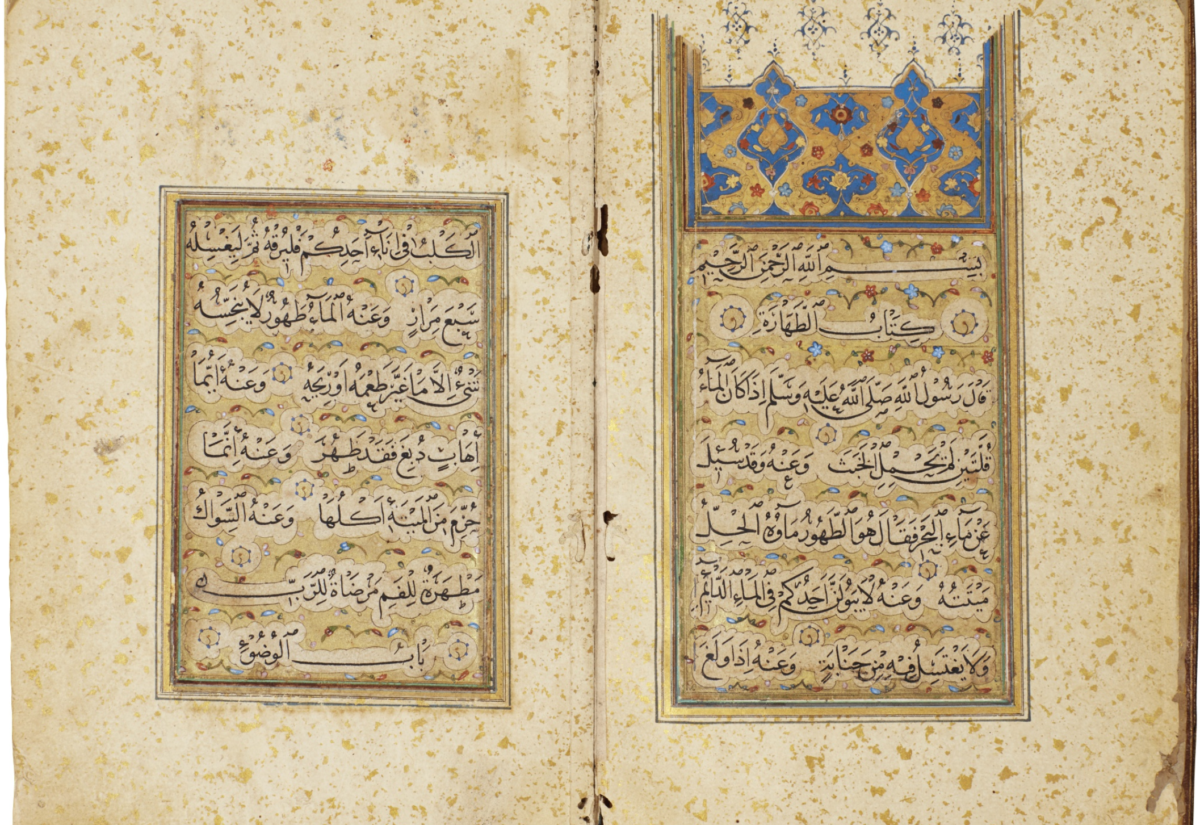 بِسْمِ اللَّهِ الرَّحْمَنِ الرَّحِيمِ
كِتَابُ الطَّهَارَةِ
قَالَ رَسُولُ اللَّهِ صَلَّى اللَّهُ عَلَيْهِ وَسَلَّمَ إِذَا كَانَ الْمَاءُ
قُلَّتَيْنِ لَمْ يَحْمِلِ الْخَبَثَ وَعَنْهُ وَقَدْ سُئِلَ
عَنْ مَاءِ الْبَحْرِ فَقَالَ هُوَ الطَّهُورُ مَاؤُهُ الْحِلُّ
مَيْتَتُهُ وَعَنْهُ لَا يَبُولَنَّ أَحَدُكُمْ فِي الْمَاءِ الدَّائِمِ
وَلَا يَغْتَسِلُ فِيهِ مِنْ جَنَابَةٍ وَعَنْهُ إِذَا وَلَغَ
الْكَلْبُ فِي إِنَاءِ أَحَدِكُمْ فَلْيُرِقْهُ ثُمَّ لْيَغْسِلْهُ
سَبْعَ مِرَارٍ وَعَنْهُ الْمَاءُ طَهُورٌ لَا يُنَجِّسُهُ
شَيْءٌ إِلَّا مَا غَيَّرَ طَعْمَهُ أَوْ رِيحَهُ وَعَنْهُ أَيُّمَا
إِهَابٍ دُبِغَ فَقَدْ طَهُرَ وَعَنْهُ إِنَّمَا
حُرِّمَ مِنَ الْمَيْتَةِ أَكْلُهَا وَعَنْهُ السِّوَاكُ
مَطْهَرَةٌ لِلْفَمِ مَرْضَاةٌ لِلرَّبِّ
بَابُ الْوُضُوءِ